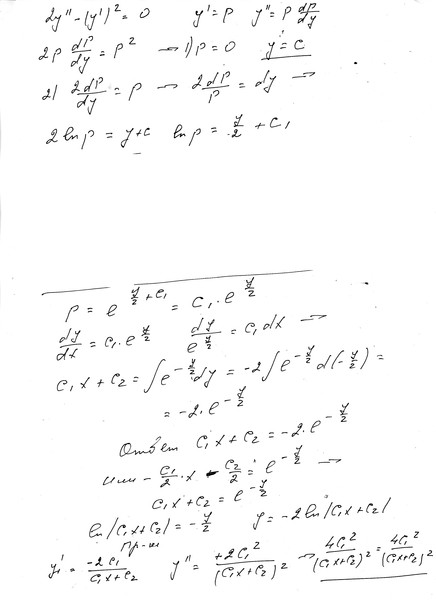 2y'' - (y')² = 0   y' = p   y'' = p dp/dy
2p dp/dy = p² → 1) p = 0   y' = c
2) 2dp/dy = p → 2dp/p = dy →
2 ln p = y + c   ln p = y/2 + c₁
p = e^(y/2 + c₁) = c₁ · e^(y/2)
dy/dx = c₁ · e^(y/2)   dy/e^(y/2) = c₁ dx →
c₁x + c₂ = ∫ e^(-y/2) dy = -2 ∫ e^(-y/2) d(-y/2) =
= -2 · e^(-y/2)
Ответ c₁x + c₂ = -2 · e^(-y/2)
или - c₁/2 · x - c₂/2 = e^(-y/2) →
c₁x + c₂ = e^(-y/2)
ln|c₁x + c₂| = -y/2   y = -2 ln|c₁x + c₂|
y' = -2c₁/(c₁x + c₂)   y'' = +2c₁²/(c₁x + c₂)² → 4c₁²/(c₁x + c₂)² = 4c₁²/(c₁x + c₂)²